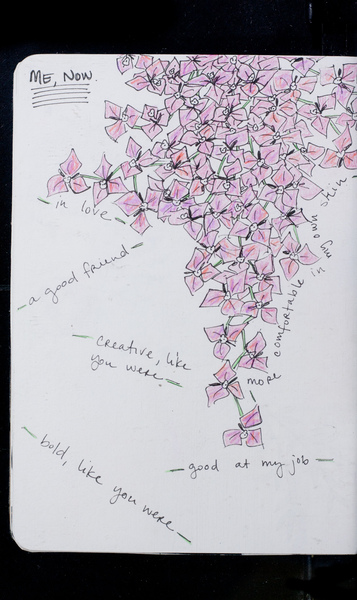 ME, NOW.
in love
a good friend
creative, like
you were
bold, like you were
good at my job
more comfortable in my own skin